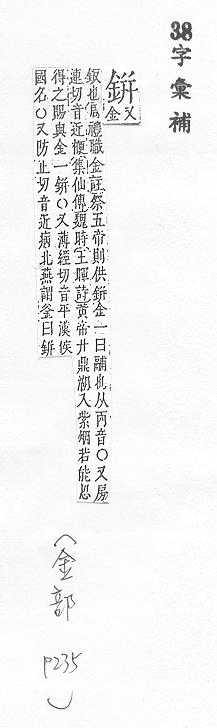 38字彙補
鉼 金又
鈑也周禮職金註祭五帝則供鉼金一曰鬴也从丙音○又房
連切音近楩集仙傳魏時王暉詩黃帝廾鼎湖入紫烟若能忍
得之賜與金一鉼○又薄經切音平漢侯
國名○又防止切音近痡北燕謂釜曰鉼
(金部 P235)